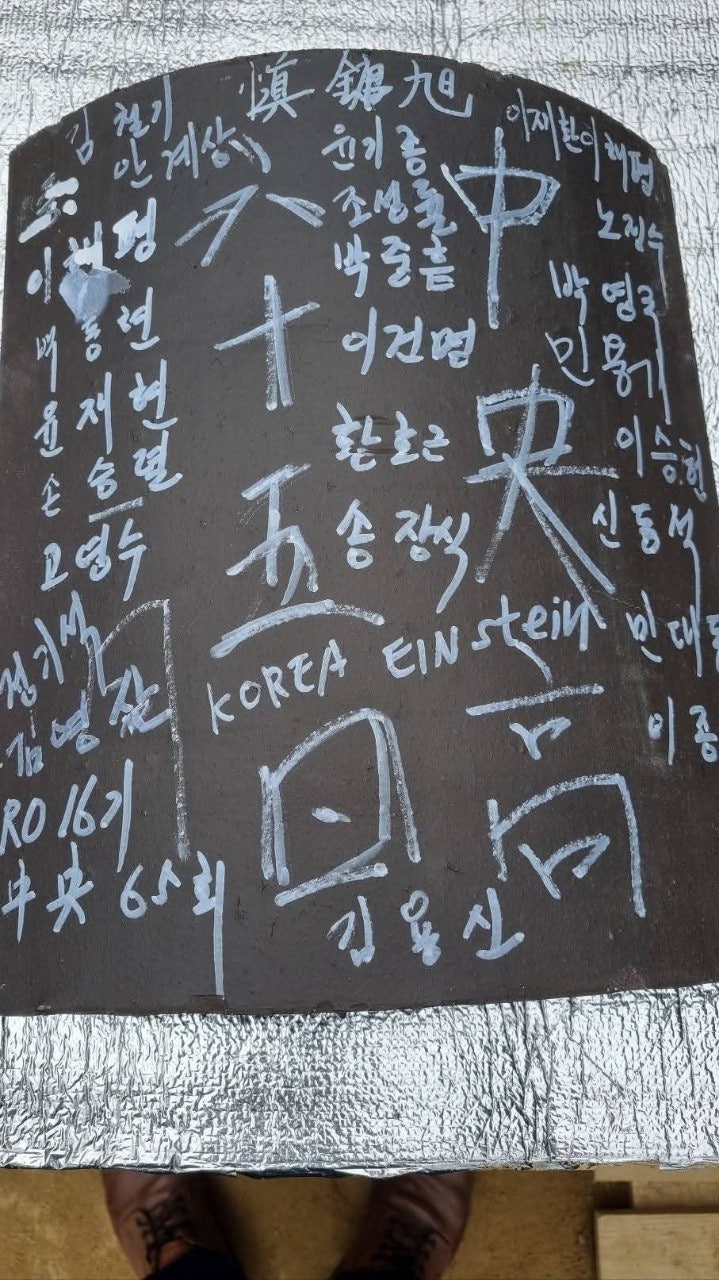 愼錦旭
김철기
안계상
이해평
백홍현
윤재현
손승렬
고영수
성기석
김영삼
RO 16기
中央 65회
六十五回
윤기종
조성률
박준흠
이건면
환호근
송장식
KOREA EINstein
김용신
中央高
이재환 이해평
노진수
박영국
민홍기
이승헌
신동석
민대
이종